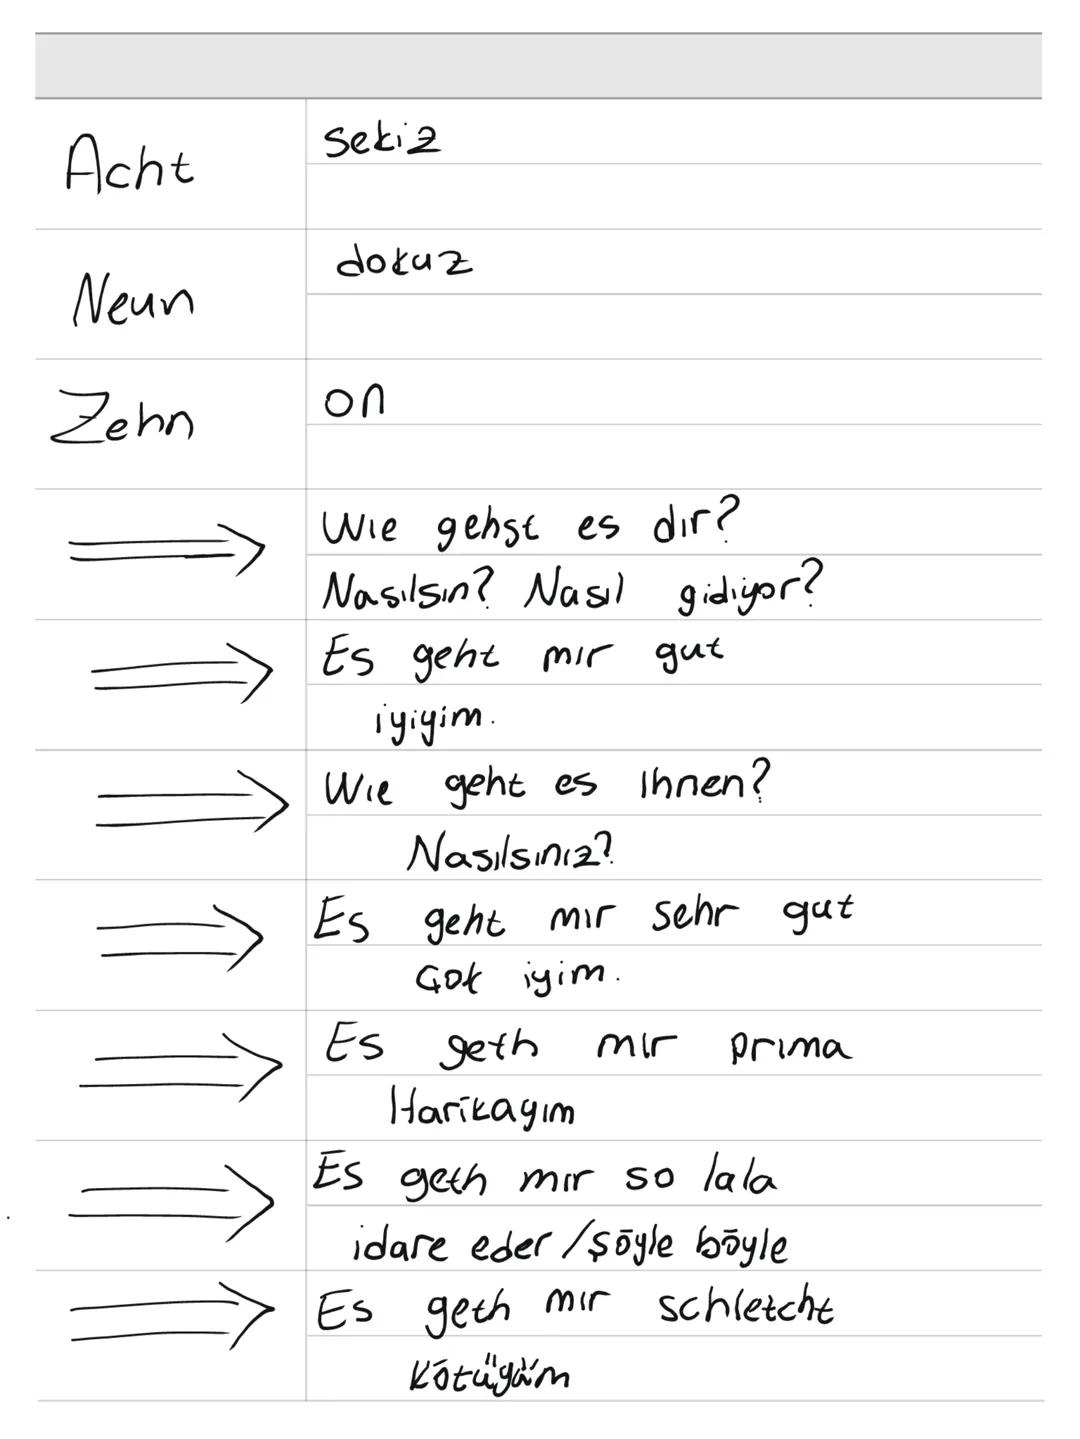 Acht
sekiz
Neun
dokuz
Zehn
on
Wie gehst es dir?
Nasılsın? Nasıl gidiyor?
Es geht mir gut
iyiyim.
Wie geht es Ihnen?
Nasılsınız?
Es geht mir sehr gut
Çok iyim.
Es geth mir prima
Harikayım
Es geth mir so lala
idare eder / şöyle böyle
Es geth mir schletcht
Kötüyüm